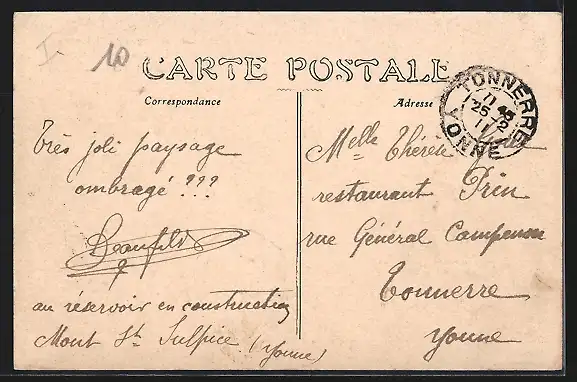 I
10
CARTE POSTALE
Correspondance
Adresse
TONNERRE
11 45
25-2
11
YONNE
Très joli paysage
ombragé ???
au réservoir en construction
Mont St Sulpice (Yonne)
Melle Thérèse
restaurant Prin
rue Général Campenon
Tonnerre
Yonne